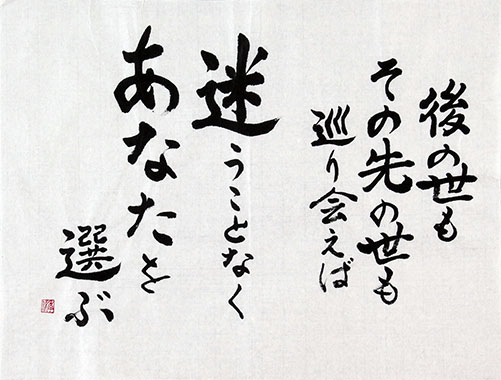 後の世も
その先の世も
巡り会えば
迷うことなく
あなたを
選ぶ